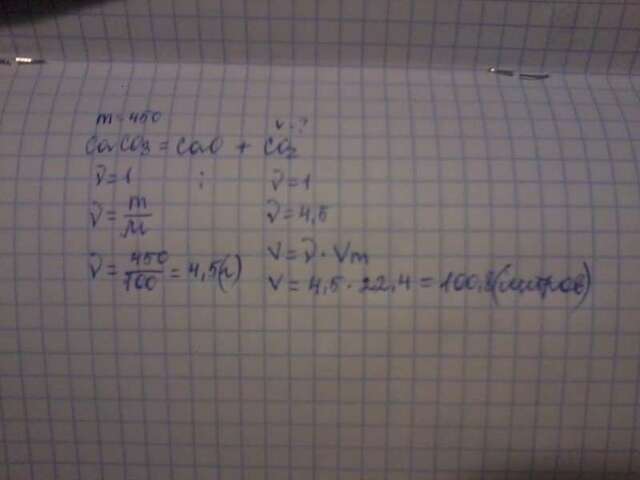 m=450 V-?
CaCO3 = CaO + CO2
ν=1 : ν=1
ν=m/M ν=4,5
V=ν·Vm
ν=450/100=4,5(г)
V=4,5·22,4=100,8(литров)